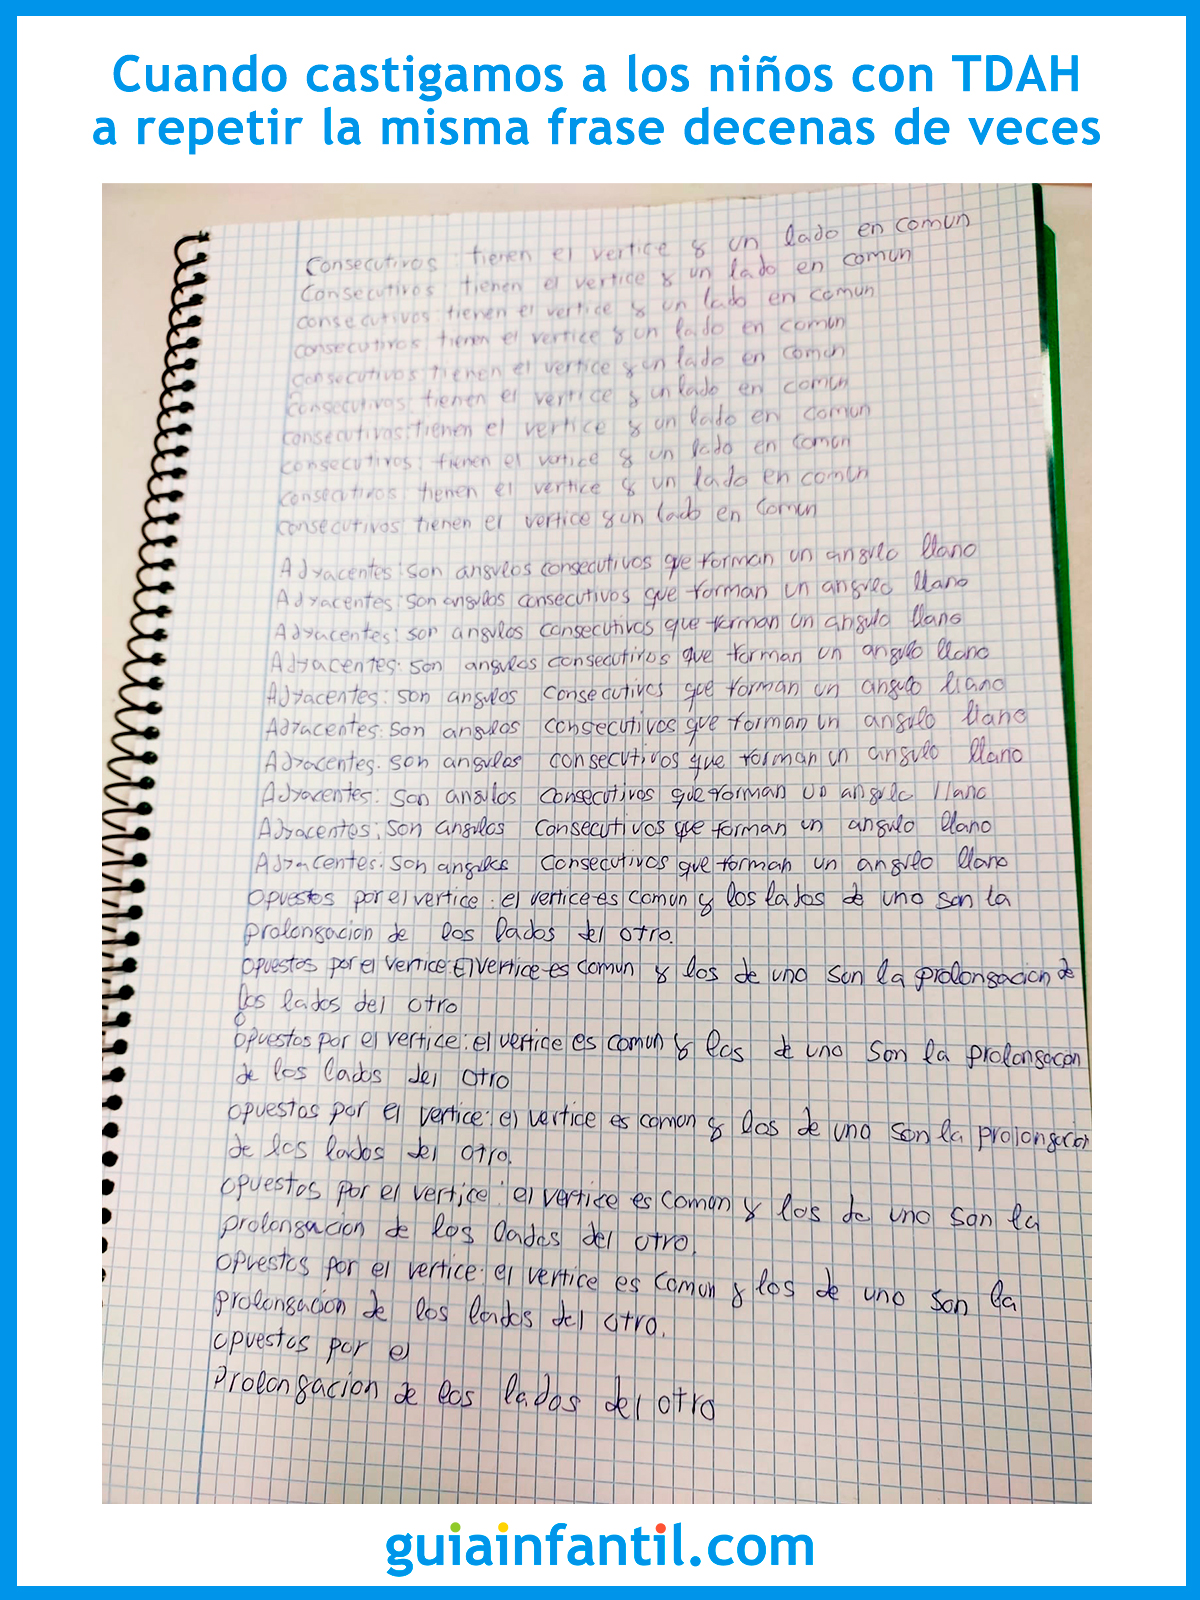 Cuando castigamos a los niños con TDAH
a repetir la misma frase decenas de veces
Consecutivos: tienen el vertice y un lado en comun
Consecutivos: tienen el vertice y un lado en comun
consecutivos: tienen el vertice y un lado en comun
consecutivos: tienen el vertice y un lado en comun
consecutivos: tienen el vertice y un lado en comun
consecutivos: tienen el vertice y un lado en comun
consecutivos: tienen el vertice y un lado en comun
consecutivos: tienen el vertice y un lado en comun
consecutivos: tienen el vertice y un lado en comun
consecutivos tienen el vertice y un lado en comun
Adyacentes: son angulos consecutivos que forman un angulo llano
Adyacentes: son angulos consecutivos que forman un angulo llano
Adyacentes: son angulos consecutivos que forman un angulo llano
Adyacentes: son angulos consecutivos que forman un angulo llano
Adyacentes: son angulos consecutivos que forman un angulo llano
Adyacentes: son angulos consecutivos que forman un angulo llano
Adyacentes: son angulos consecutivos que forman un angulo llano
Adyacentes: son angulos consecutivos que forman un angulo llano
Adyacentes: son angulos consecutivos que forman un angulo llano
Adyacentes: son angulos consecutivos que forman un angulo llano
opuestos por el vertice: el vertice es comun y los lados de uno son la
prolongacion de los lados del otro.
opuestos por el vertice: El vertice es comun y los de uno son la prolongacion de
los lados del otro
opuestos por el vertice: el vertice es comun y los de uno son la prolongacon
de los lados del otro
opuestos por el vertice: el vertice es comun y los de uno son la prolongacion
de los lados del otro.
opuestos por el vertice: el vertice es comun y los de uno son la
prolongacion de los lados del otro.
opuestos por el vertice: el vertice es comun y los de uno son la
prolongacion de los lados del otro.
opuestos por el
Prolongacion de los lados del otro
guiainfantil.com